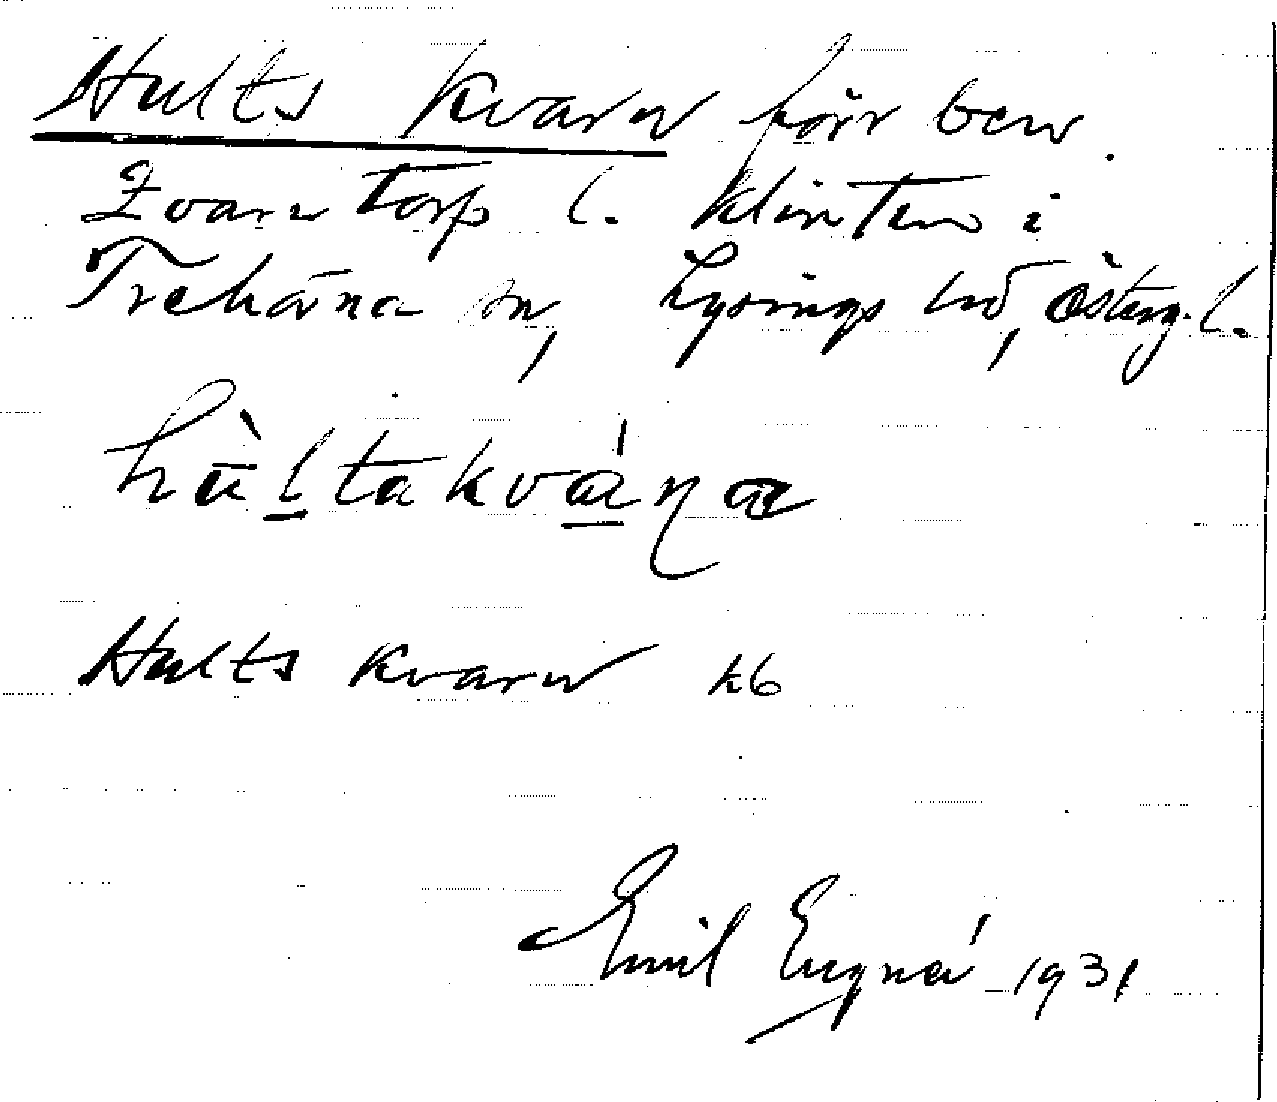 Hults kvarn förr ben.
Kvarntorp l. Klinten i
Trehörna sn, Lysings hd, Österg. l.
hùl̠takvá̠ŋa
Hults kvarn kb
Emil Engné 1931